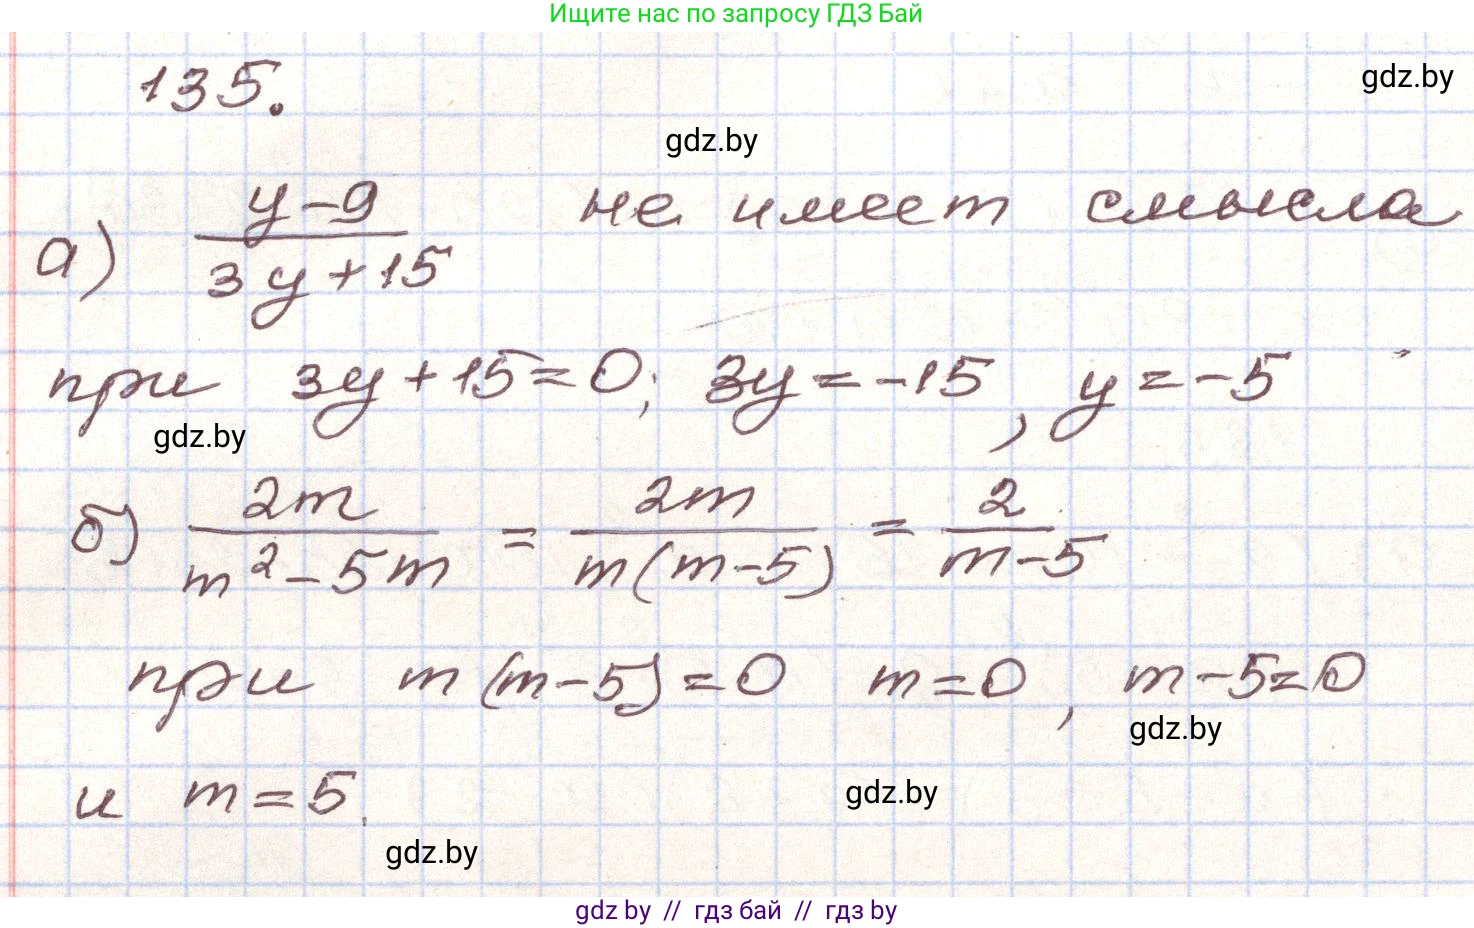 Ищите нас по запросу ГДЗ Бай
135.
gdz.by
gdz.by
а) (y-9)/(3y+15) не имеет смысла
при 3y+15=0; 3y=-15, y=-5
gdz.by
б) 2m/(m²-5m) = 2m/(m(m-5)) = 2/(m-5)
при m(m-5)=0 m=0, m-5=0
gdz.by
и m=5.
gdz.by
gdz.by
gdz by // гдз бай // гдз by